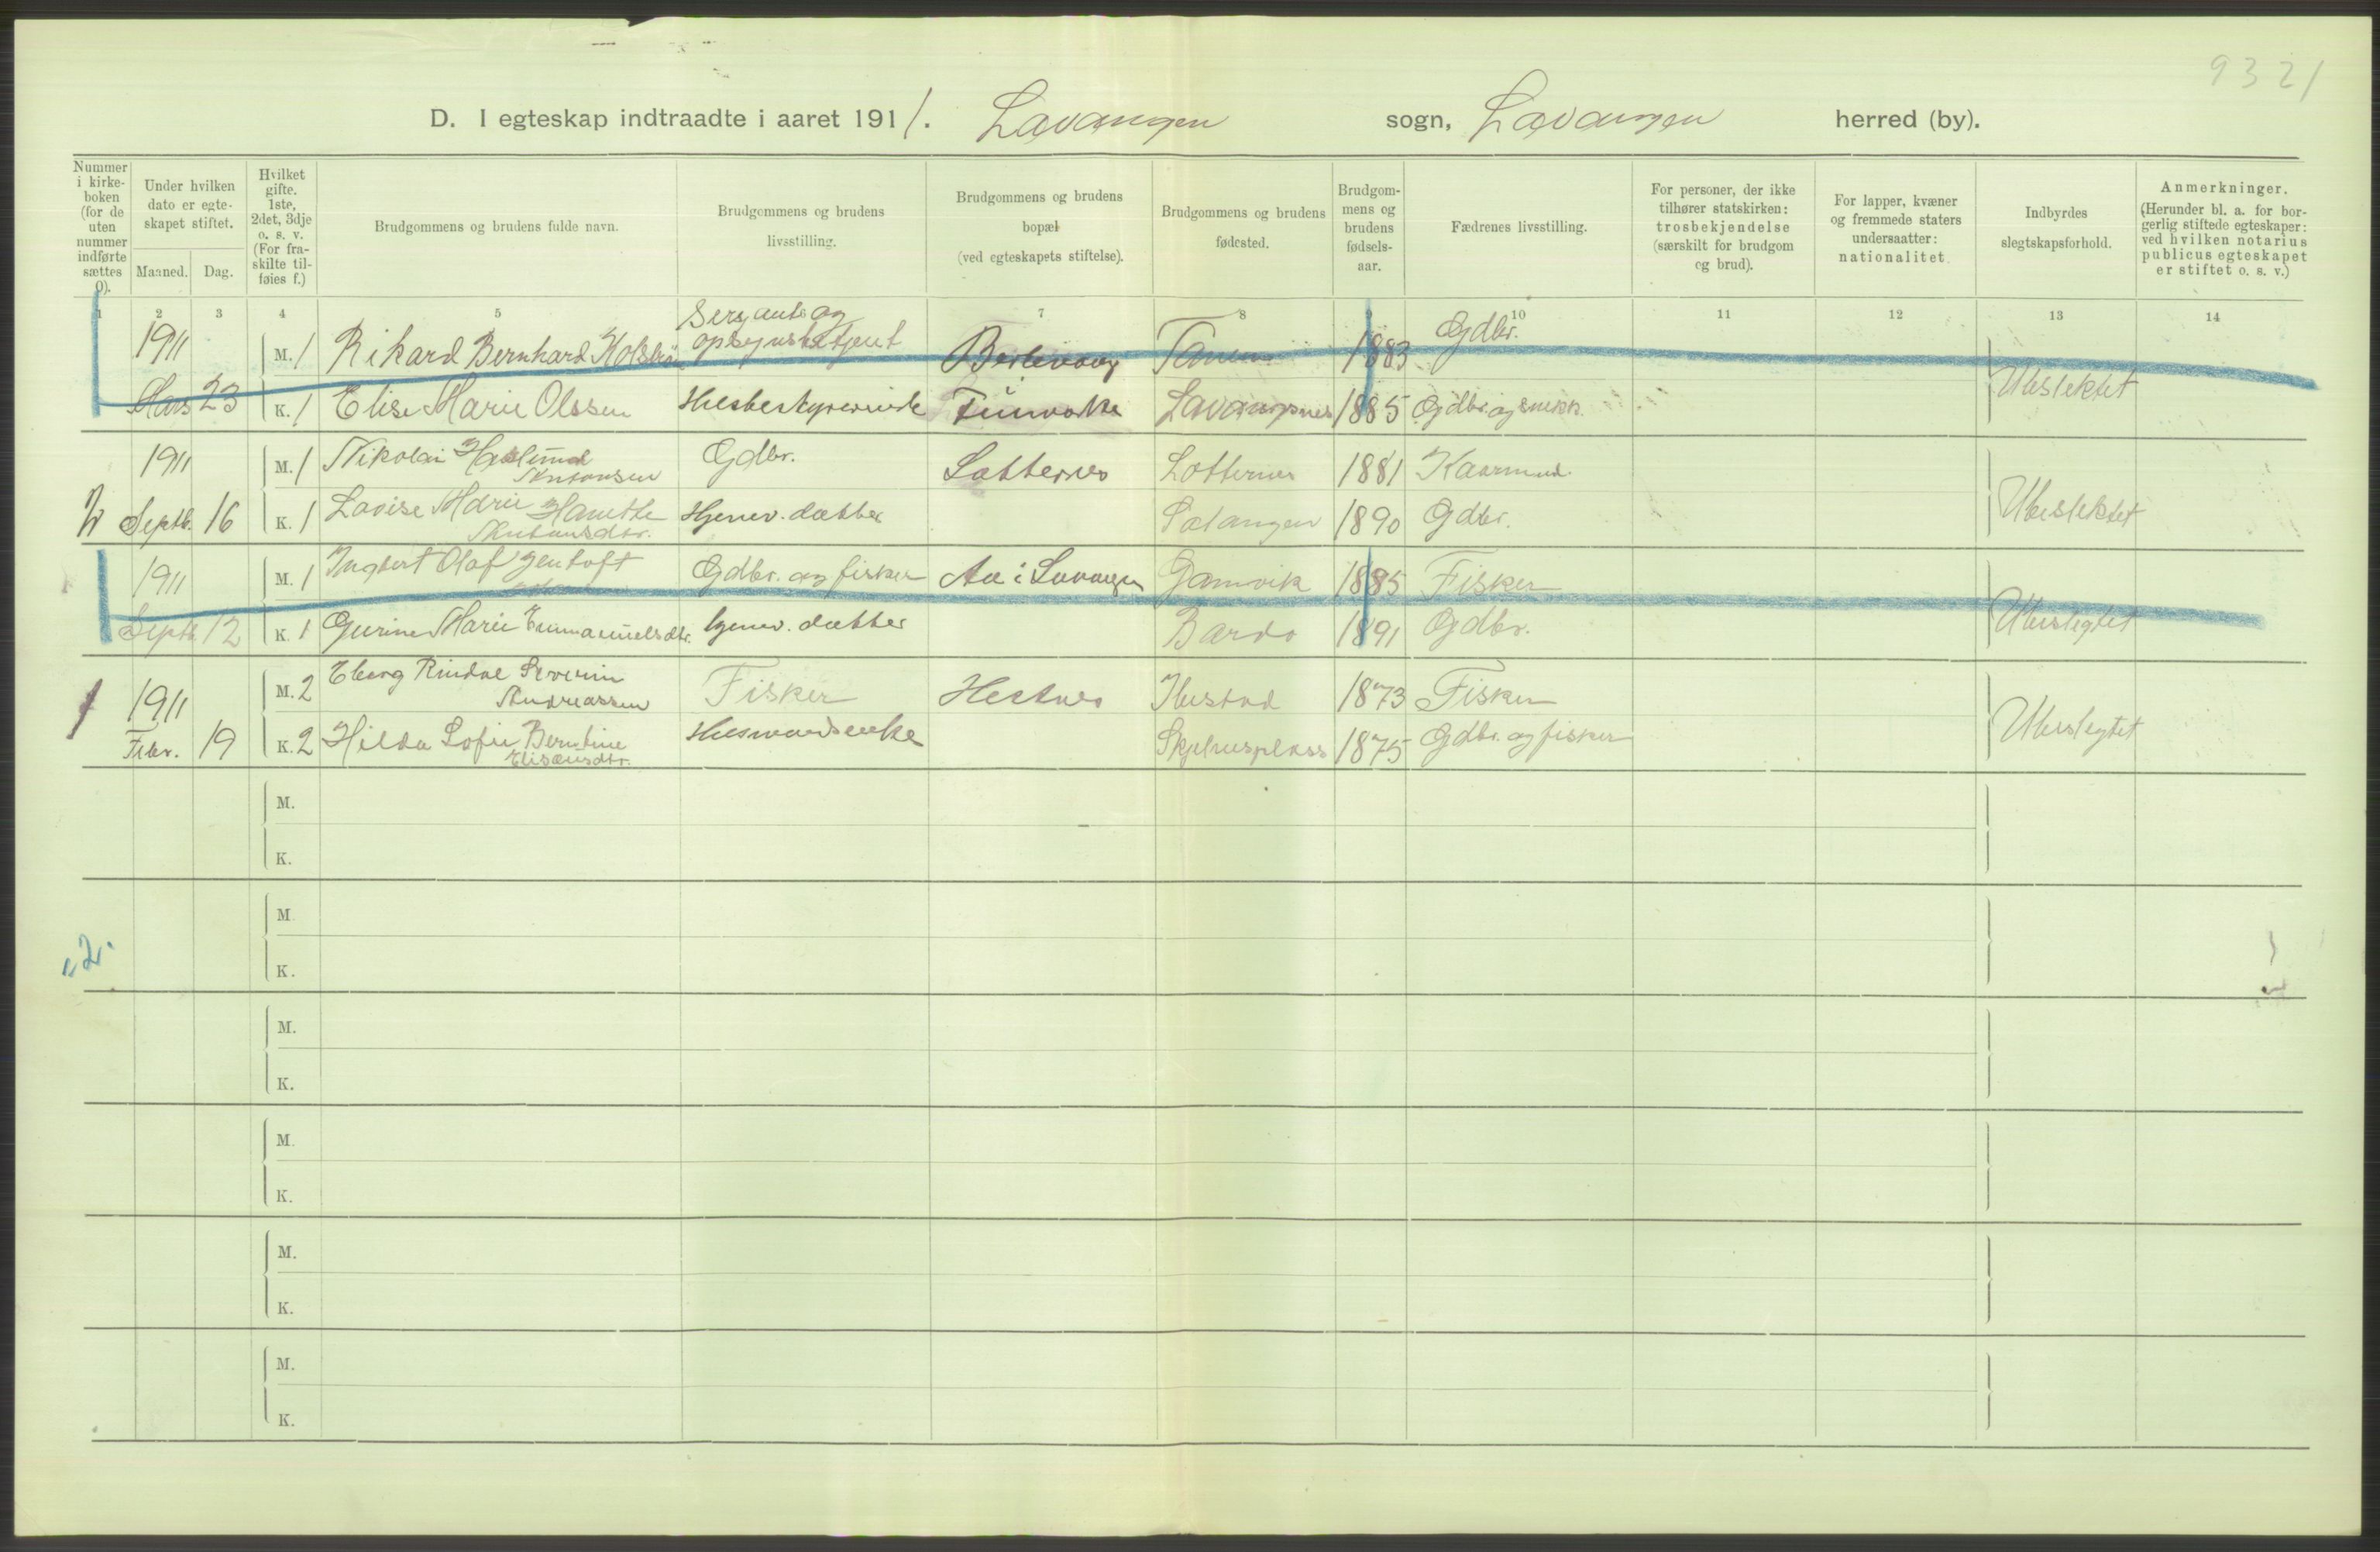 9321
D. I egteskap indtraadte i aaret 1911. Lavangen sogn, Lavangen herred (by).
Nummer i kirke-boken (for de uten nummer indførte sættes 0).
Under hvilken dato er egte-skapet stiftet.
Maaned. Dag.
Hvilket gifte. 1ste, 2det, 3dje o. s. v. (For fra-skilte til-føies f.)
Brudgommens og brudens fulde navn.
Brudgommens og brudens livsstilling.
Brudgommens og brudens bopæl (ved egteskapets stiftelse).
Brudgommens og brudens fødested.
Brudgom-mens og brudens fødsels-aar.
Fædrenes livsstilling.
For personer, der ikke tilhører statskirken: trosbekjendelse (særskilt for brudgom og brud).
For lapper, kvæner og fremmede staters undersaatter: nationalitet.
Indbyrdes slegtskapsforhold.
Anmerkninger. (Herunder bl. a. for bor-gerlig stiftede egteskaper: ved hvilken notarius publicus egteskapet er stiftet o. s. v.)
1 2 3 4 5 7 8 10 11 12 13 14
Sersjant og
1911 M. 1 Rikard Bernhard opsynsbetjent Berlevaag 1883 Gdbr.
Mars 23 K. 1 Elise Marie Olssen Husbestyrerinde Lavangsnes 1885 Gdbr. og snekk. Ubeslektet
1911 M. 1 Nikolai Haslund Gdbr. Lotternes 1881
Antonsen
Septb. 16 K. 1 Lovise Marie Hanette Hjemev. datter Salangen 1890 Gdbr. Ubeslektet
Antonsdtr.
1911 M. 1 Ingbert Olaf Jentoft Gdbr. og fisker Aa i Lavangen Gamvik 1885 Fisker
Septb. 12 K. 1 Gurine Marie Emmanuelsdtr. hjemev. datter Bardo 1891 Gdbr. Ubeslegtet
1 1911 M. 2 Eberg Rindal Severin Fisker Hestnes 1873 Fisker
Andreassen
Febr. 19 K. 2 Hilda Sofie Berntine Husmandsenke 1875 Gdbr. og fisker Ubeslegtet
Elisæusdtr.
M.
K.
M
K.
"2.
M.
K.
M.
K.
M.
K.
M.
K.